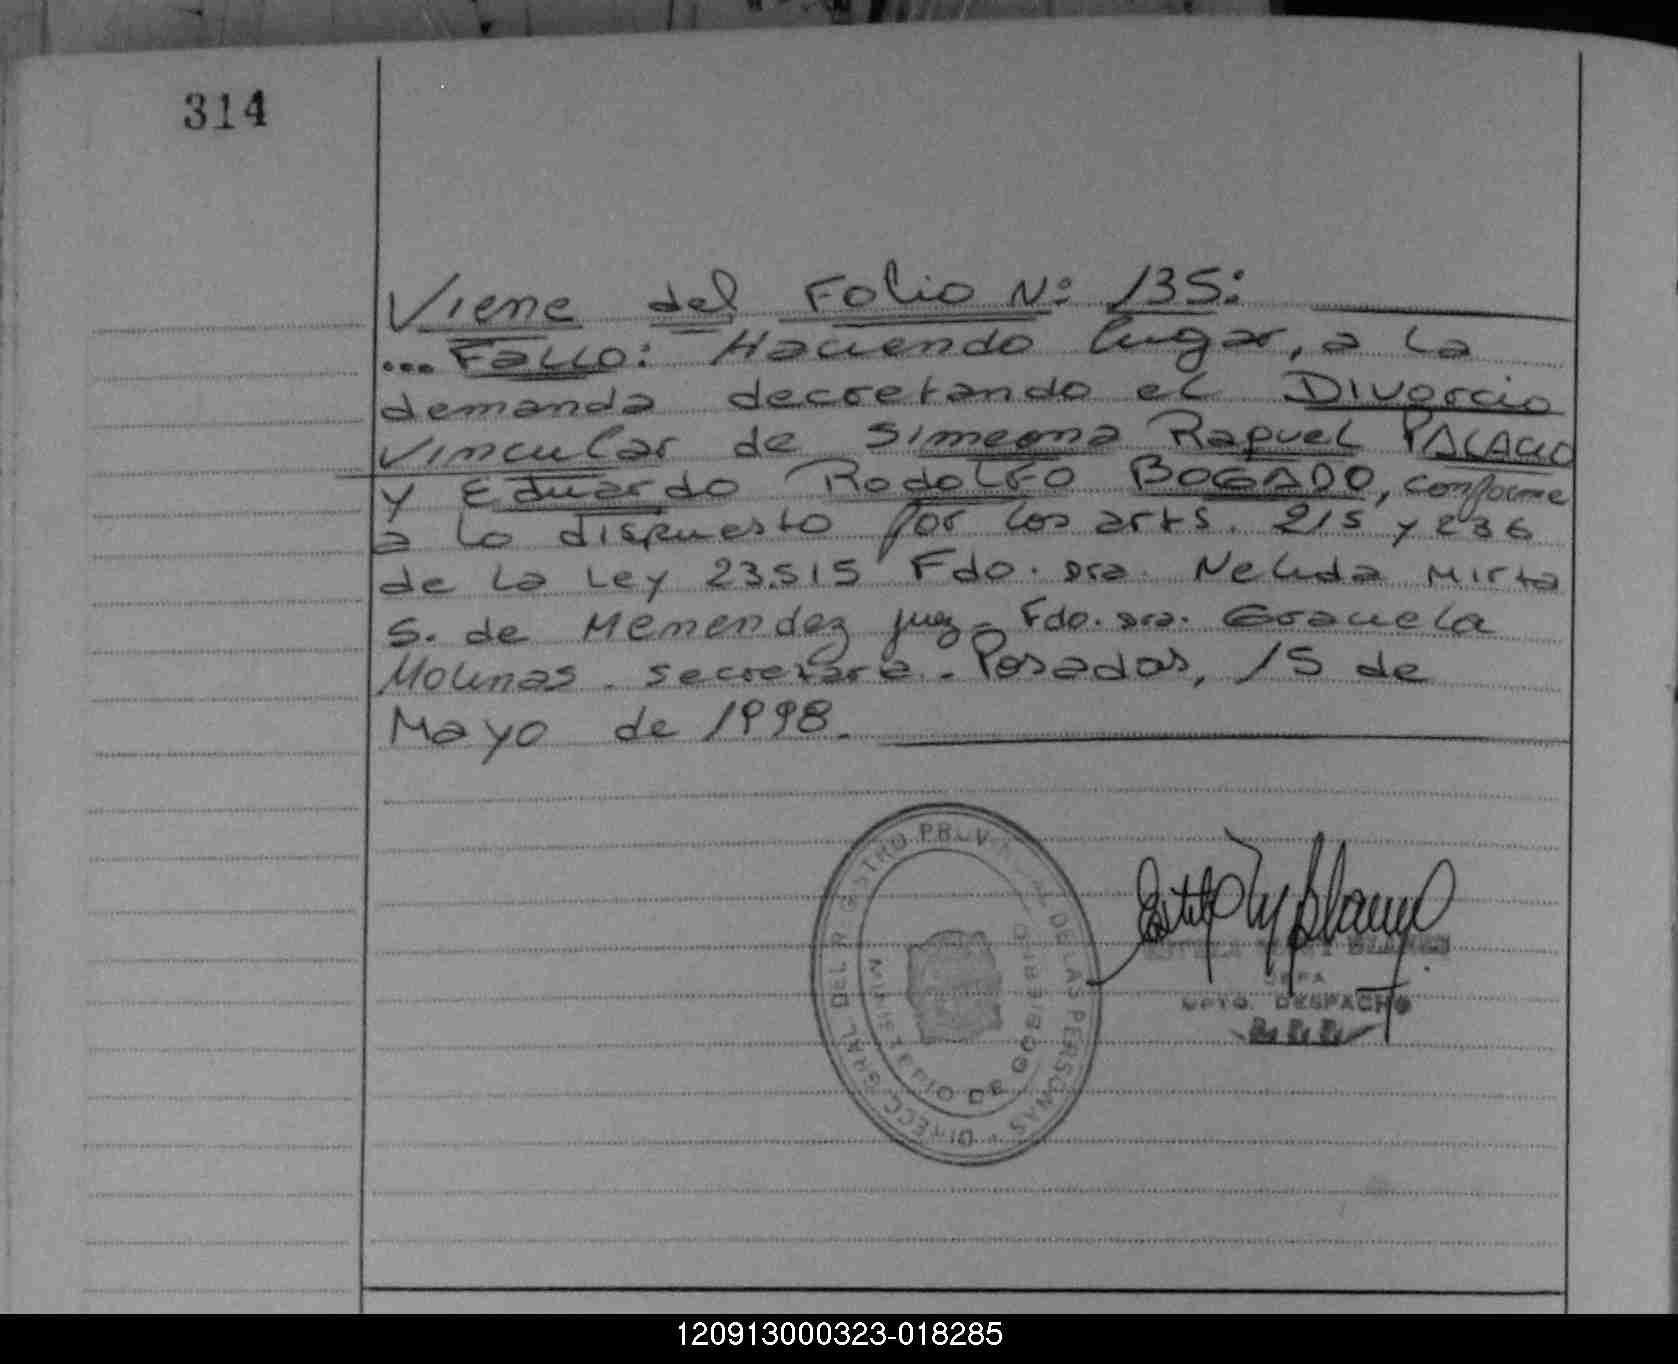 314
Viene del Folio N: 135:
... Fallo: Haciendo lugar, a la
demanda decretando el Divorcio
vincular de Simeona Raquel PALACIO
y Eduardo Rodolfo BOGADO, conforme
a lo dispuesto por los arts. 215 y 236
de la Ley 23.515 Fdo. Dra. Nelida Mirta
S. de Menendez juez - Fdo. Dra. Graciela
Molinas. secretaria. Posadas, 15 de
Mayo de 1998.
DIRECC. GRAL DEL REGISTRO PROVINCIAL DE LAS PERSONAS
MINISTERIO DE GOBIERNO
ESTELA
JEFA
DPTO. DESPACHO
120913000323-018285